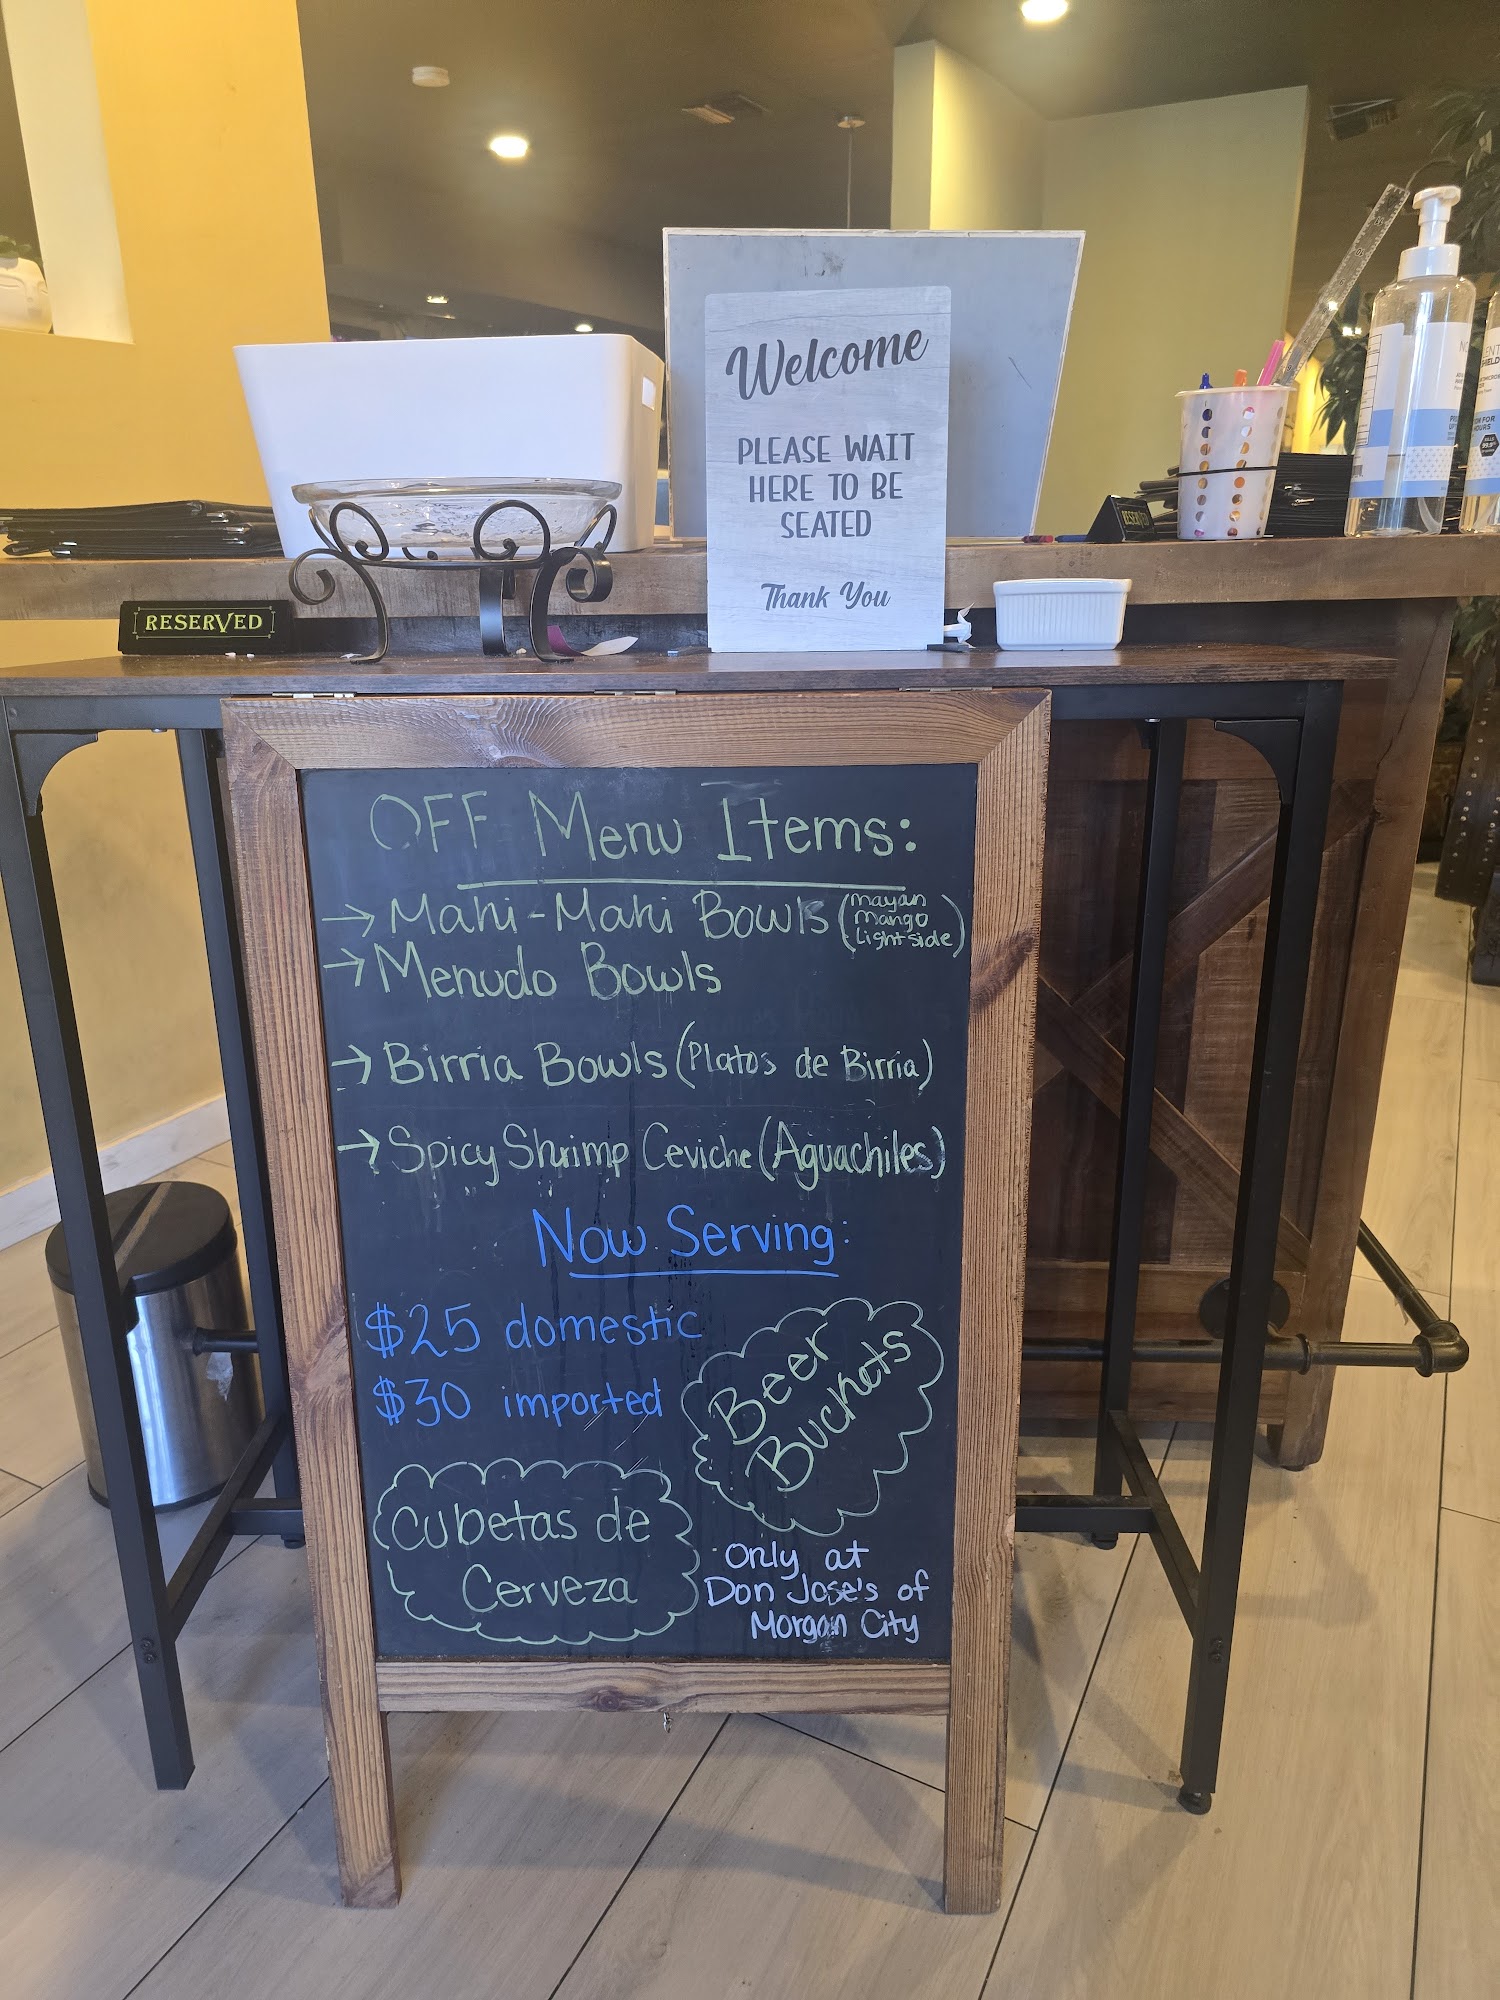 Welcome
PLEASE WAIT
HERE TO BE
SEATED
Thank You
RESERVED
RESERVED
OFF Menu Items:
→ Mahi-Mahi Bowls (mayan
mango
Lightside)
→ Menudo Bowls
→ Birria Bowls (Platos de Birria)
→ Spicy Shrimp Ceviche (Aguachiles)
Now Serving:
$25 domestic
$30 imported
Beer
Buckets
Cubetas de
Cerveza
Only at
Don Jose's of
Morgan City